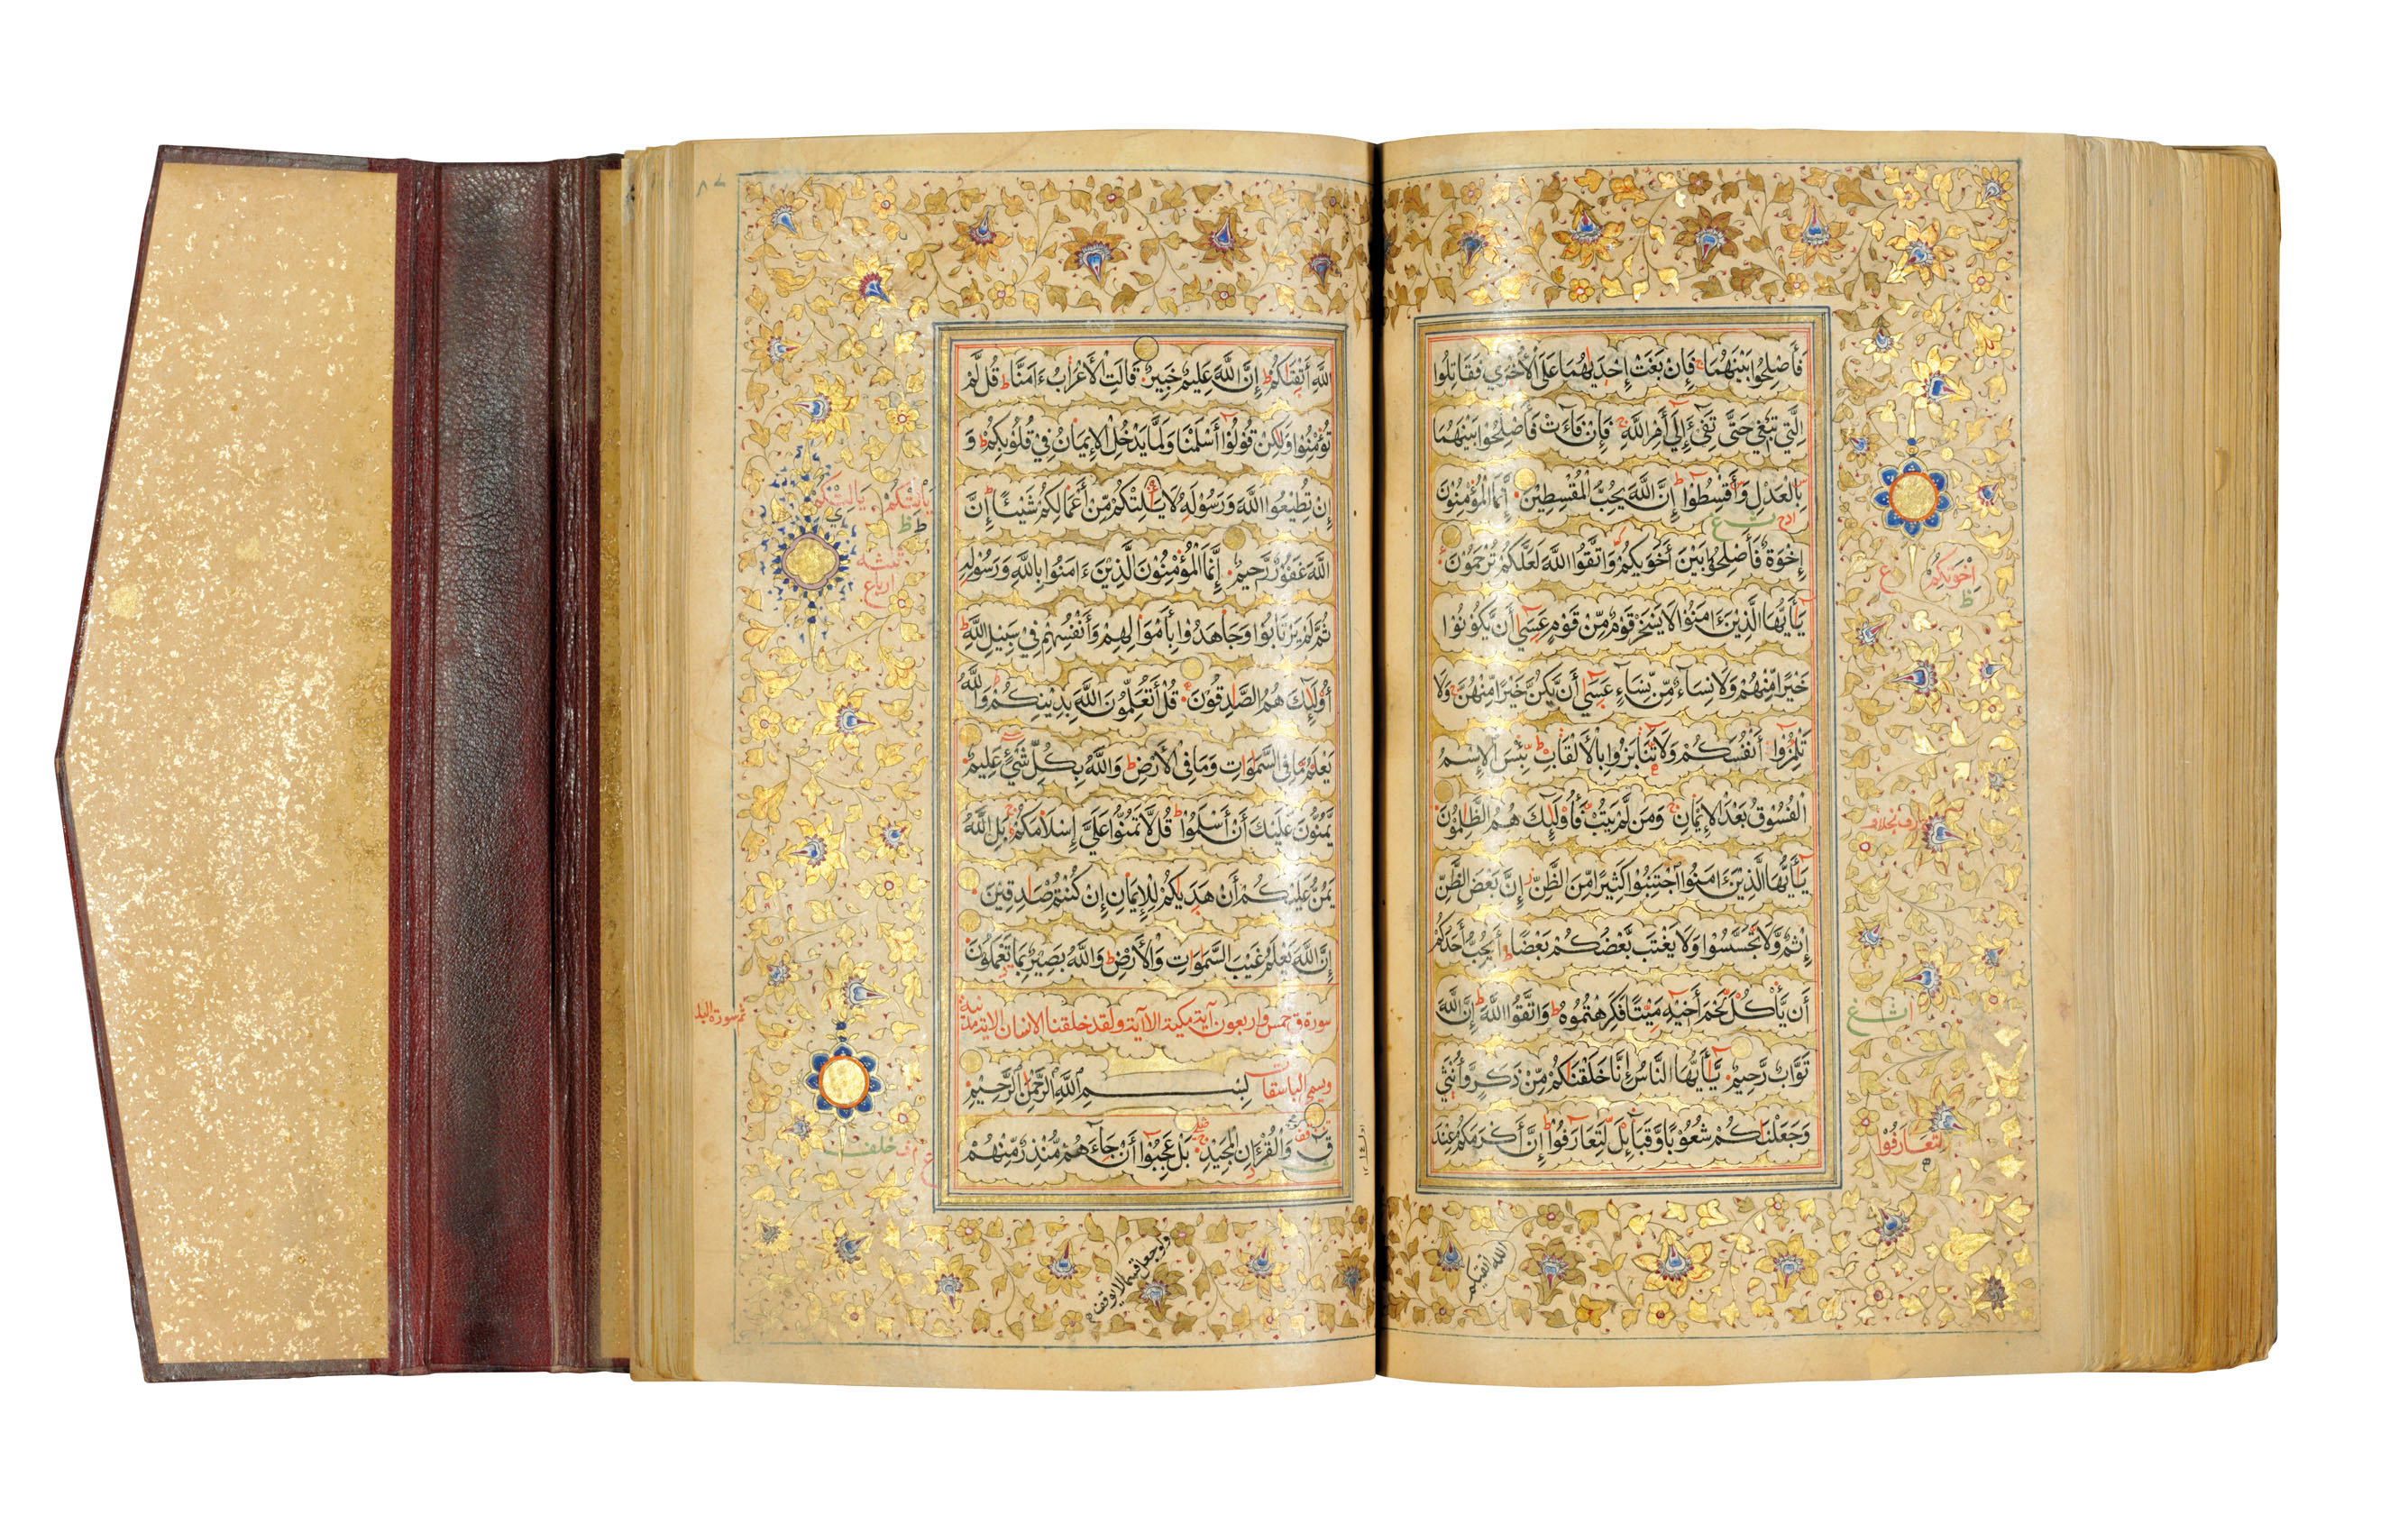 فَأَصْلِحُوا بَيْنَهُمَا ج فَإِنْ بَغَتْ إِحْدَيٰهُمَا عَلَى الْأُخْرَي فَقَاتِلُوا
الَّتِي تَبْغِي حَتَّى تَفِيءَ إِلَى أَمْرِ اللَّهِ ج فَإِنْ فَاءَتْ فَأَصْلِحُوا بَيْنَهُمَا
بِالْعَدْلِ وَأَقْسِطُوا ط إِنَّ اللَّهَ يُحِبُّ الْمُقْسِطِينَ إِنَّمَا الْمُؤْمِنُونَ
إِخْوَةٌ فَأَصْلِحُوا بَيْنَ أَخَوَيْكُمْ وَاتَّقُوا اللَّهَ لَعَلَّكُمْ تُرْحَمُونَ
يَٰأَيُّهَا الَّذِينَ ءَامَنُوا لَا يَسْخَرْ قَوْمٌ مِّنْ قَوْمٍ عَسَي أَنْ يَّكُونُوا
خَيْرًا مِّنْهُمْ وَلَا نِسَاءٌ مِّنْ نِّسَاءٍ عَسَي أَنْ يَّكُنَّ خَيْرًا مِّنْهُنَّ ج وَلَا
تَلْمِزُوا أَنْفُسَكُمْ وَلَا تَنَابَزُوا بِالْأَلْقَابِ ط بِئْسَ الْإِسْمُ
الْفُسُوقُ بَعْدَ الْإِيمَانِ ج وَمَنْ لَّمْ يَتُبْ فَأُولَٰئِكَ هُمُ الظَّالِمُونَ
يَٰأَيُّهَا الَّذِينَ ءَامَنُوا اجْتَنِبُوا كَثِيرًا مِّنَ الظَّنِّ إِنَّ بَعْضَ الظَّنِّ
إِثْمٌ وَّلَا تَجَسَّسُوا وَلَا يَغْتَبْ بَّعْضُكُمْ بَعْضًا ط أَيُحِبُّ أَحَدُكُمْ
أَنْ يَّأْكُلَ لَحْمَ أَخِيهِ مَيْتًا فَكَرِهْتُمُوهُ ط وَاتَّقُوا اللَّهَ ط إِنَّ اللَّهَ
تَوَّابٌ رَّحِيمٌ يَٰأَيُّهَا النَّاسُ إِنَّا خَلَقْنَاكُمْ مِّنْ ذَكَرٍ وَّأُنْثَى
وَجَعَلْنَاكُمْ شُعُوبًا وَّقَبَائِلَ لِتَعَارَفُوا ط إِنَّ أَكْرَمَكُمْ عِنْدَ
أَخَوَيْكُمْ
لِتَعَارَفُوا
الله اتقيكم
اللَّهِ أَتْقَاكُمْ ط إِنَّ اللَّهَ عَلِيمٌ خَبِيرٌ قَالَتِ الْأَعْرَابُ ءَامَنَّا ط قُلْ لَّمْ
تُؤْمِنُوا وَلَكِنْ قُولُوا أَسْلَمْنَا وَلَمَّا يَدْخُلِ الْإِيمَانُ فِي قُلُوبِكُمْ ط وَ
إِنْ تُطِيعُوا اللَّهَ وَرَسُولَهُ لَا يَلِتْكُمْ مِّنْ أَعْمَالِكُمْ شَيْئًا ط إِنَّ
اللَّهَ غَفُورٌ رَّحِيمٌ إِنَّمَا الْمُؤْمِنُونَ الَّذِينَ ءَامَنُوا بِاللَّهِ وَرَسُولِهِ
ثُمَّ لَمْ يَرْتَابُوا وَجَاهَدُوا بِأَمْوَالِهِمْ وَأَنْفُسِهِمْ فِي سَبِيلِ اللَّهِ ط
أُولَٰئِكَ هُمُ الصَّادِقُونَ قُلْ أَتُعَلِّمُونَ اللَّهَ بِدِينِكُمْ وَاللَّهُ
يَعْلَمُ مَا فِي السَّمَوَاتِ وَمَا فِي الْأَرْضِ ط وَاللَّهُ بِكُلِّ شَيْءٍ عَلِيمٌ
يَمُنُّونَ عَلَيْكَ أَنْ أَسْلَمُوا ط قُلْ لَّا تَمُنُّوا عَلَيَّ إِسْلَامَكُمْ بَلِ اللَّهُ
يَمُنُّ عَلَيْكُمْ أَنْ هَدَيٰكُمْ لِلْإِيمَانِ إِنْ كُنْتُمْ صَادِقِينَ
إِنَّ اللَّهَ يَعْلَمُ غَيْبَ السَّمَوَاتِ وَالْأَرْضِ ط وَاللَّهُ بَصِيرٌ بِمَا تَعْمَلُونَ
سورة ق خمس واربعون آية مكية الا آية ولقد خلقنا الانسان الاية مدنية
وتسمى الباسقات بِسْمِ اللَّهِ الرَّحْمَنِ الرَّحِيمِ
قٓ وَالْقُرْءَانِ الْمَجِيدِ بَلْ عَجِبُوا أَنْ جَاءَهُمْ مُّنْذِرٌ مِّنْهُمْ
يَالِتْكُمْ يَالِتْكُمْ
ثلثة
ارباع
خلف